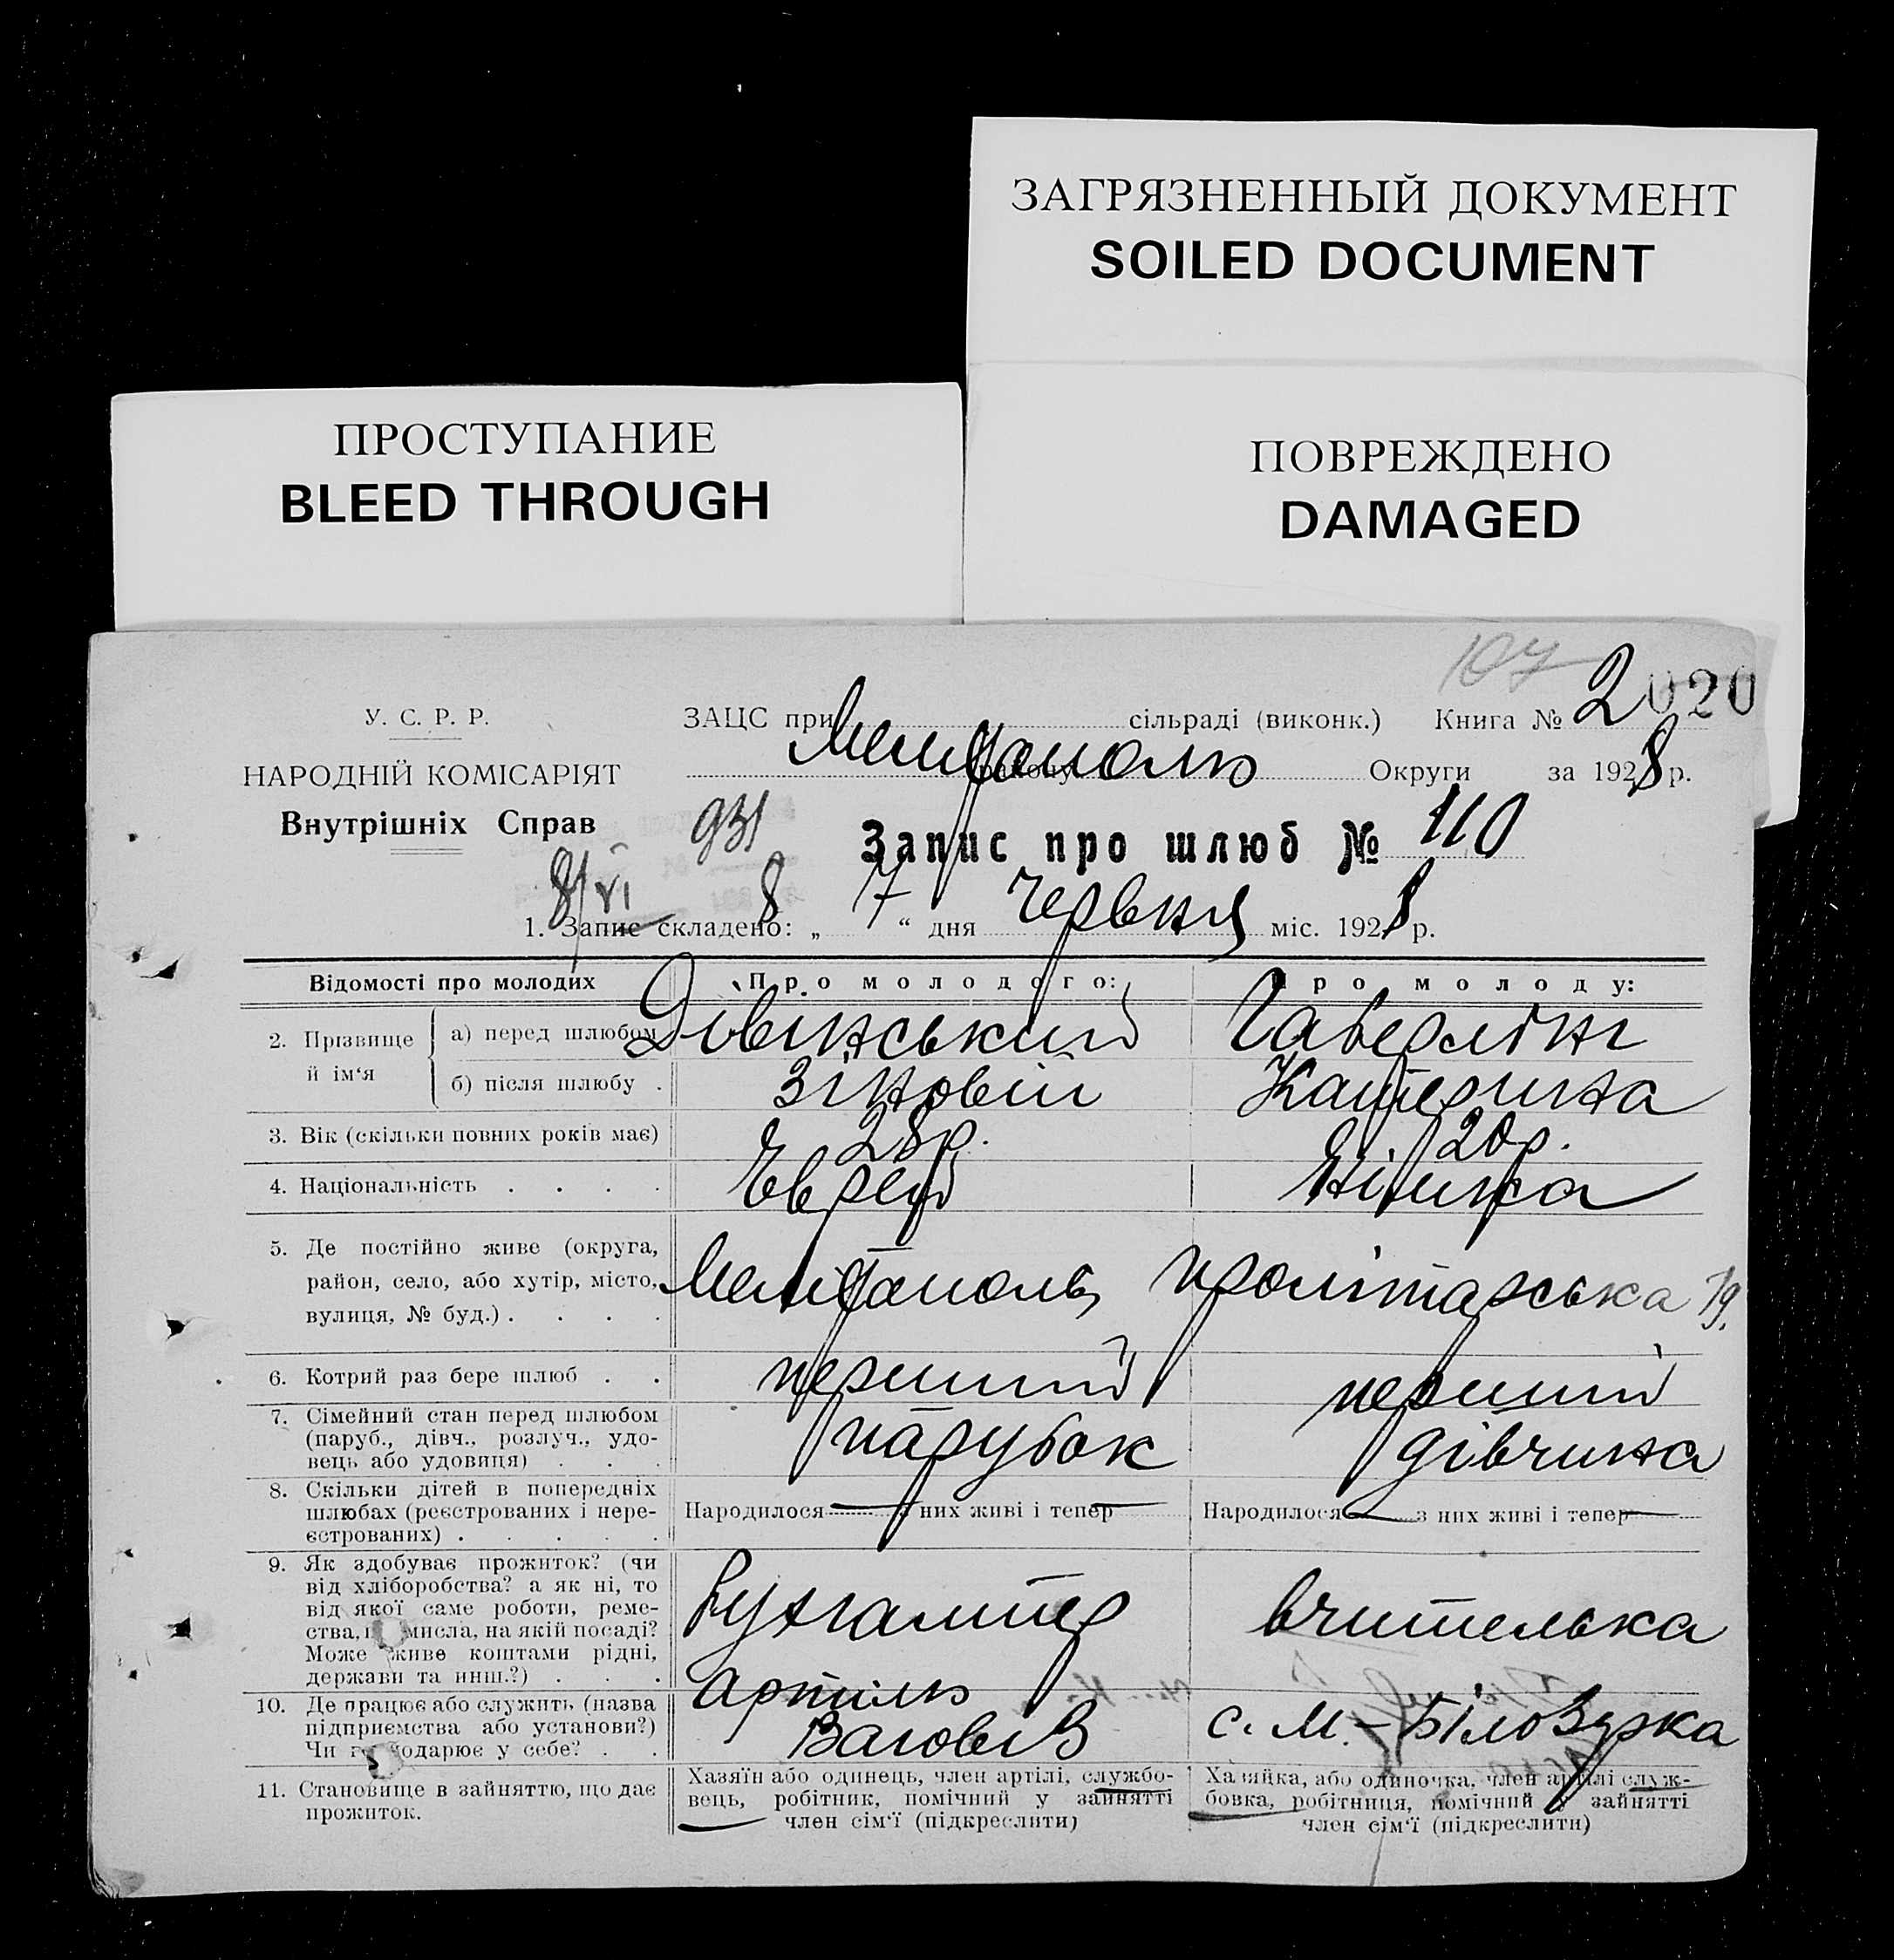 ЗАГРЯЗНЕННЫЙ ДОКУМЕНТ
SOILED DOCUMENT
ПРОСТУПАНИЕ
BLEED THROUGH
ПОВРЕЖДЕНО
DAMAGED
107
2020
У. С. Р. Р.
НАРОДНІЙ КОМІСАРІЯТ
Внутрішніх Справ
ЗАЦС при сільраді (виконк.) Книга № 2
Мелітополю
району Округи за 1928 р.
931
Запис про шлюб № 110
8/VI 8
1. Запис складено: „ 7 “ дня червня міс. 1928 р.
Відомості про молодих Про молодого: Про молоду:
2. Прізвище й ім‘я
а) перед шлюбом Дівінський
б) після шлюбу . Зіновій Катерина
3. Вік (скільки повних років має) 28р. 20р.
4. Національність . . . . Єврей Німка
5. Де постійно живе (округа,
район, село, або хутір, місто,
вулиця, № буд.) . . . .
Мелітополь, пролітарська 79.
6. Котрий раз бере шлюб . . перший перший
7. Сімейний стан перед шлюбом
(паруб., дівч., розлуч., удо-
вець або удовиця) . . .
парубок дівчина
8. Скільки дітей в попередніх
шлюбах (реєстрованих і нере-
єстрованих) . . . . .
Народилося — з них живі і тепер —
Народилося — з них живі і тепер —
9. Як здобуває прожиток? (чи
від хліборобства? а як ні, то
від якої саме роботи, реме-
ства, мисла, на якій посаді?
Може живе коштами рідні,
держави та инш.?) . . .
Бухгалтер вчителька
10. Де працює або служить (назва
підприємства або установи?)
Чи господарює у себе? . .
артілю
Ваговів
с. М.-Білозурка
11. Становище в зайняттю, що дає
прожиток.
Хазяїн або одинець, член артілі, службо-
вець, робітник, помічний у зайнятті
член сім‘ї (підкреслити)
Хазяйка, або одиночка, член артілі служ-
бовка, робітниця, помічний у зайнятті
член сім‘ї (підкреслити)